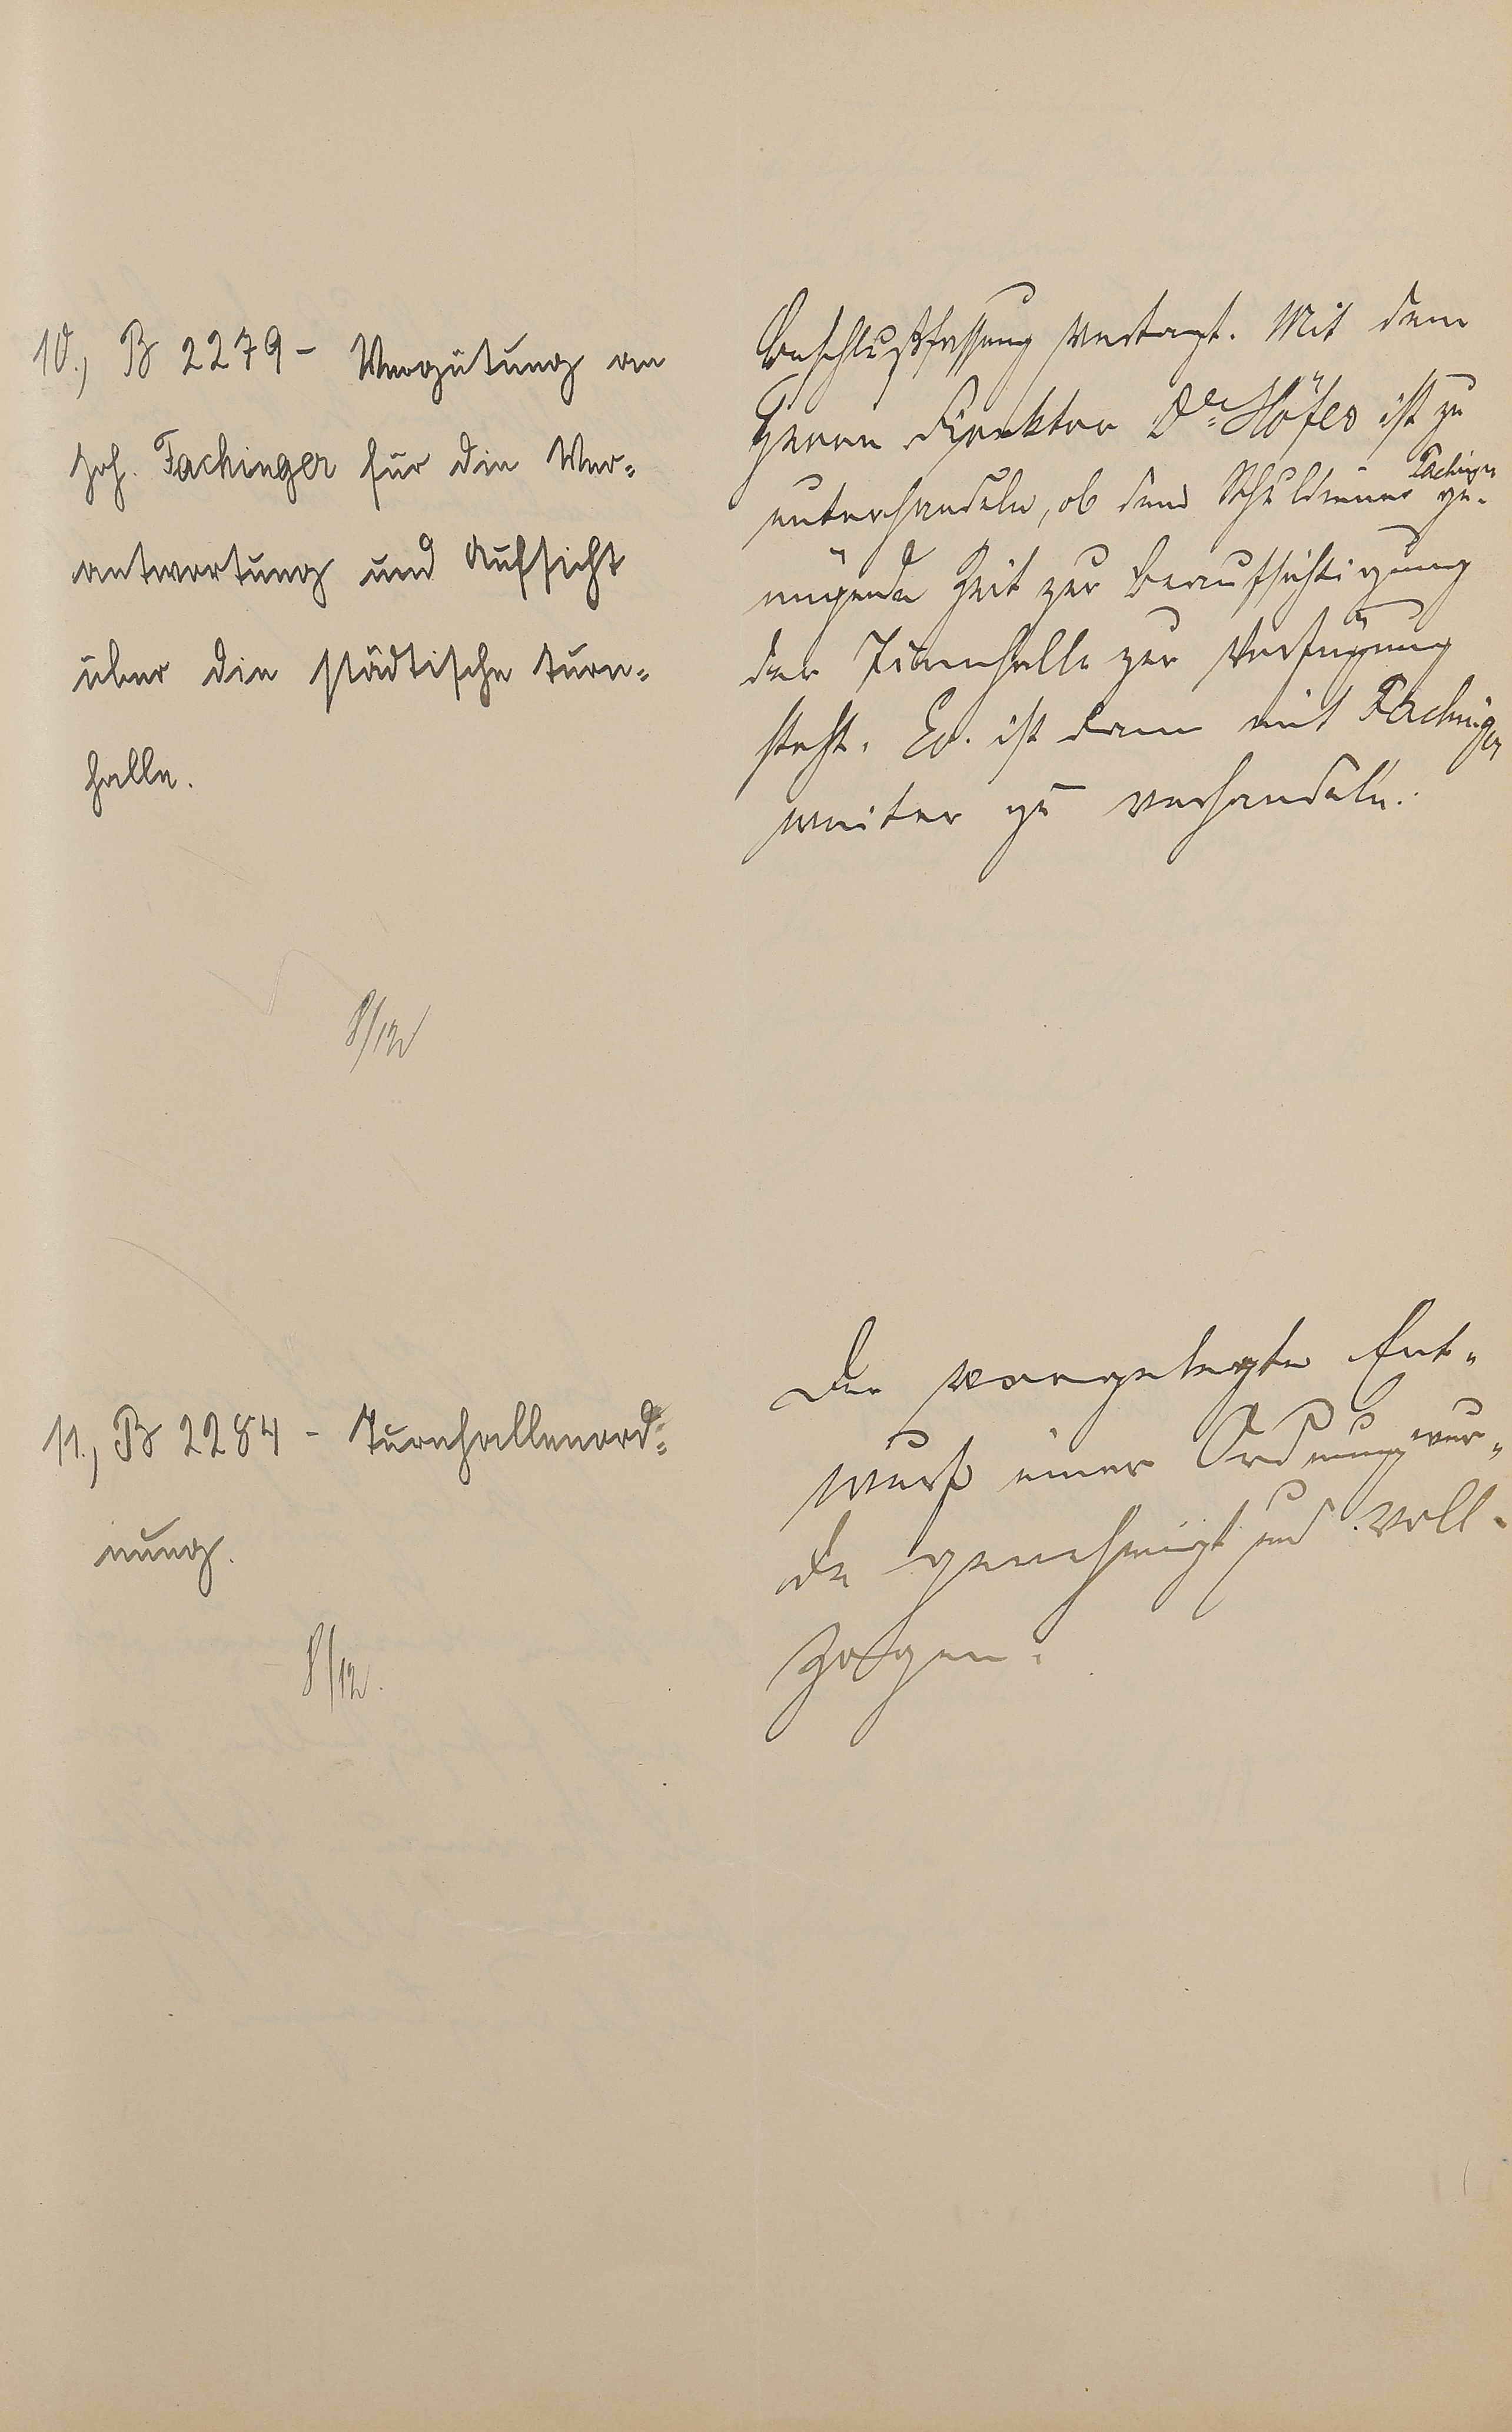 10., B 2279 - Vergütung an
Joh. Fachinger für die Ver-
antwortung und Aufsicht
über die städtische Turn-
halle.
8/12
Beschlußfassung vertagt. Mit dem
Herrn Direktor Dr. Höfer ist zu
unterhandeln, ob dem Schuldiener Fachinger ge-
nügende Zeit zur Beaufsichtigung
der Turnhalle zur Verfügung
steht. Ev. ist dann mit Fachinger
weiter zu verhandeln.
11., B 2284 - Turnhallenord-
nung.
8/12.
Der vorgelegte Ent-
wurf einer Ordnung wur-
de genehmigt und voll-
zogen.